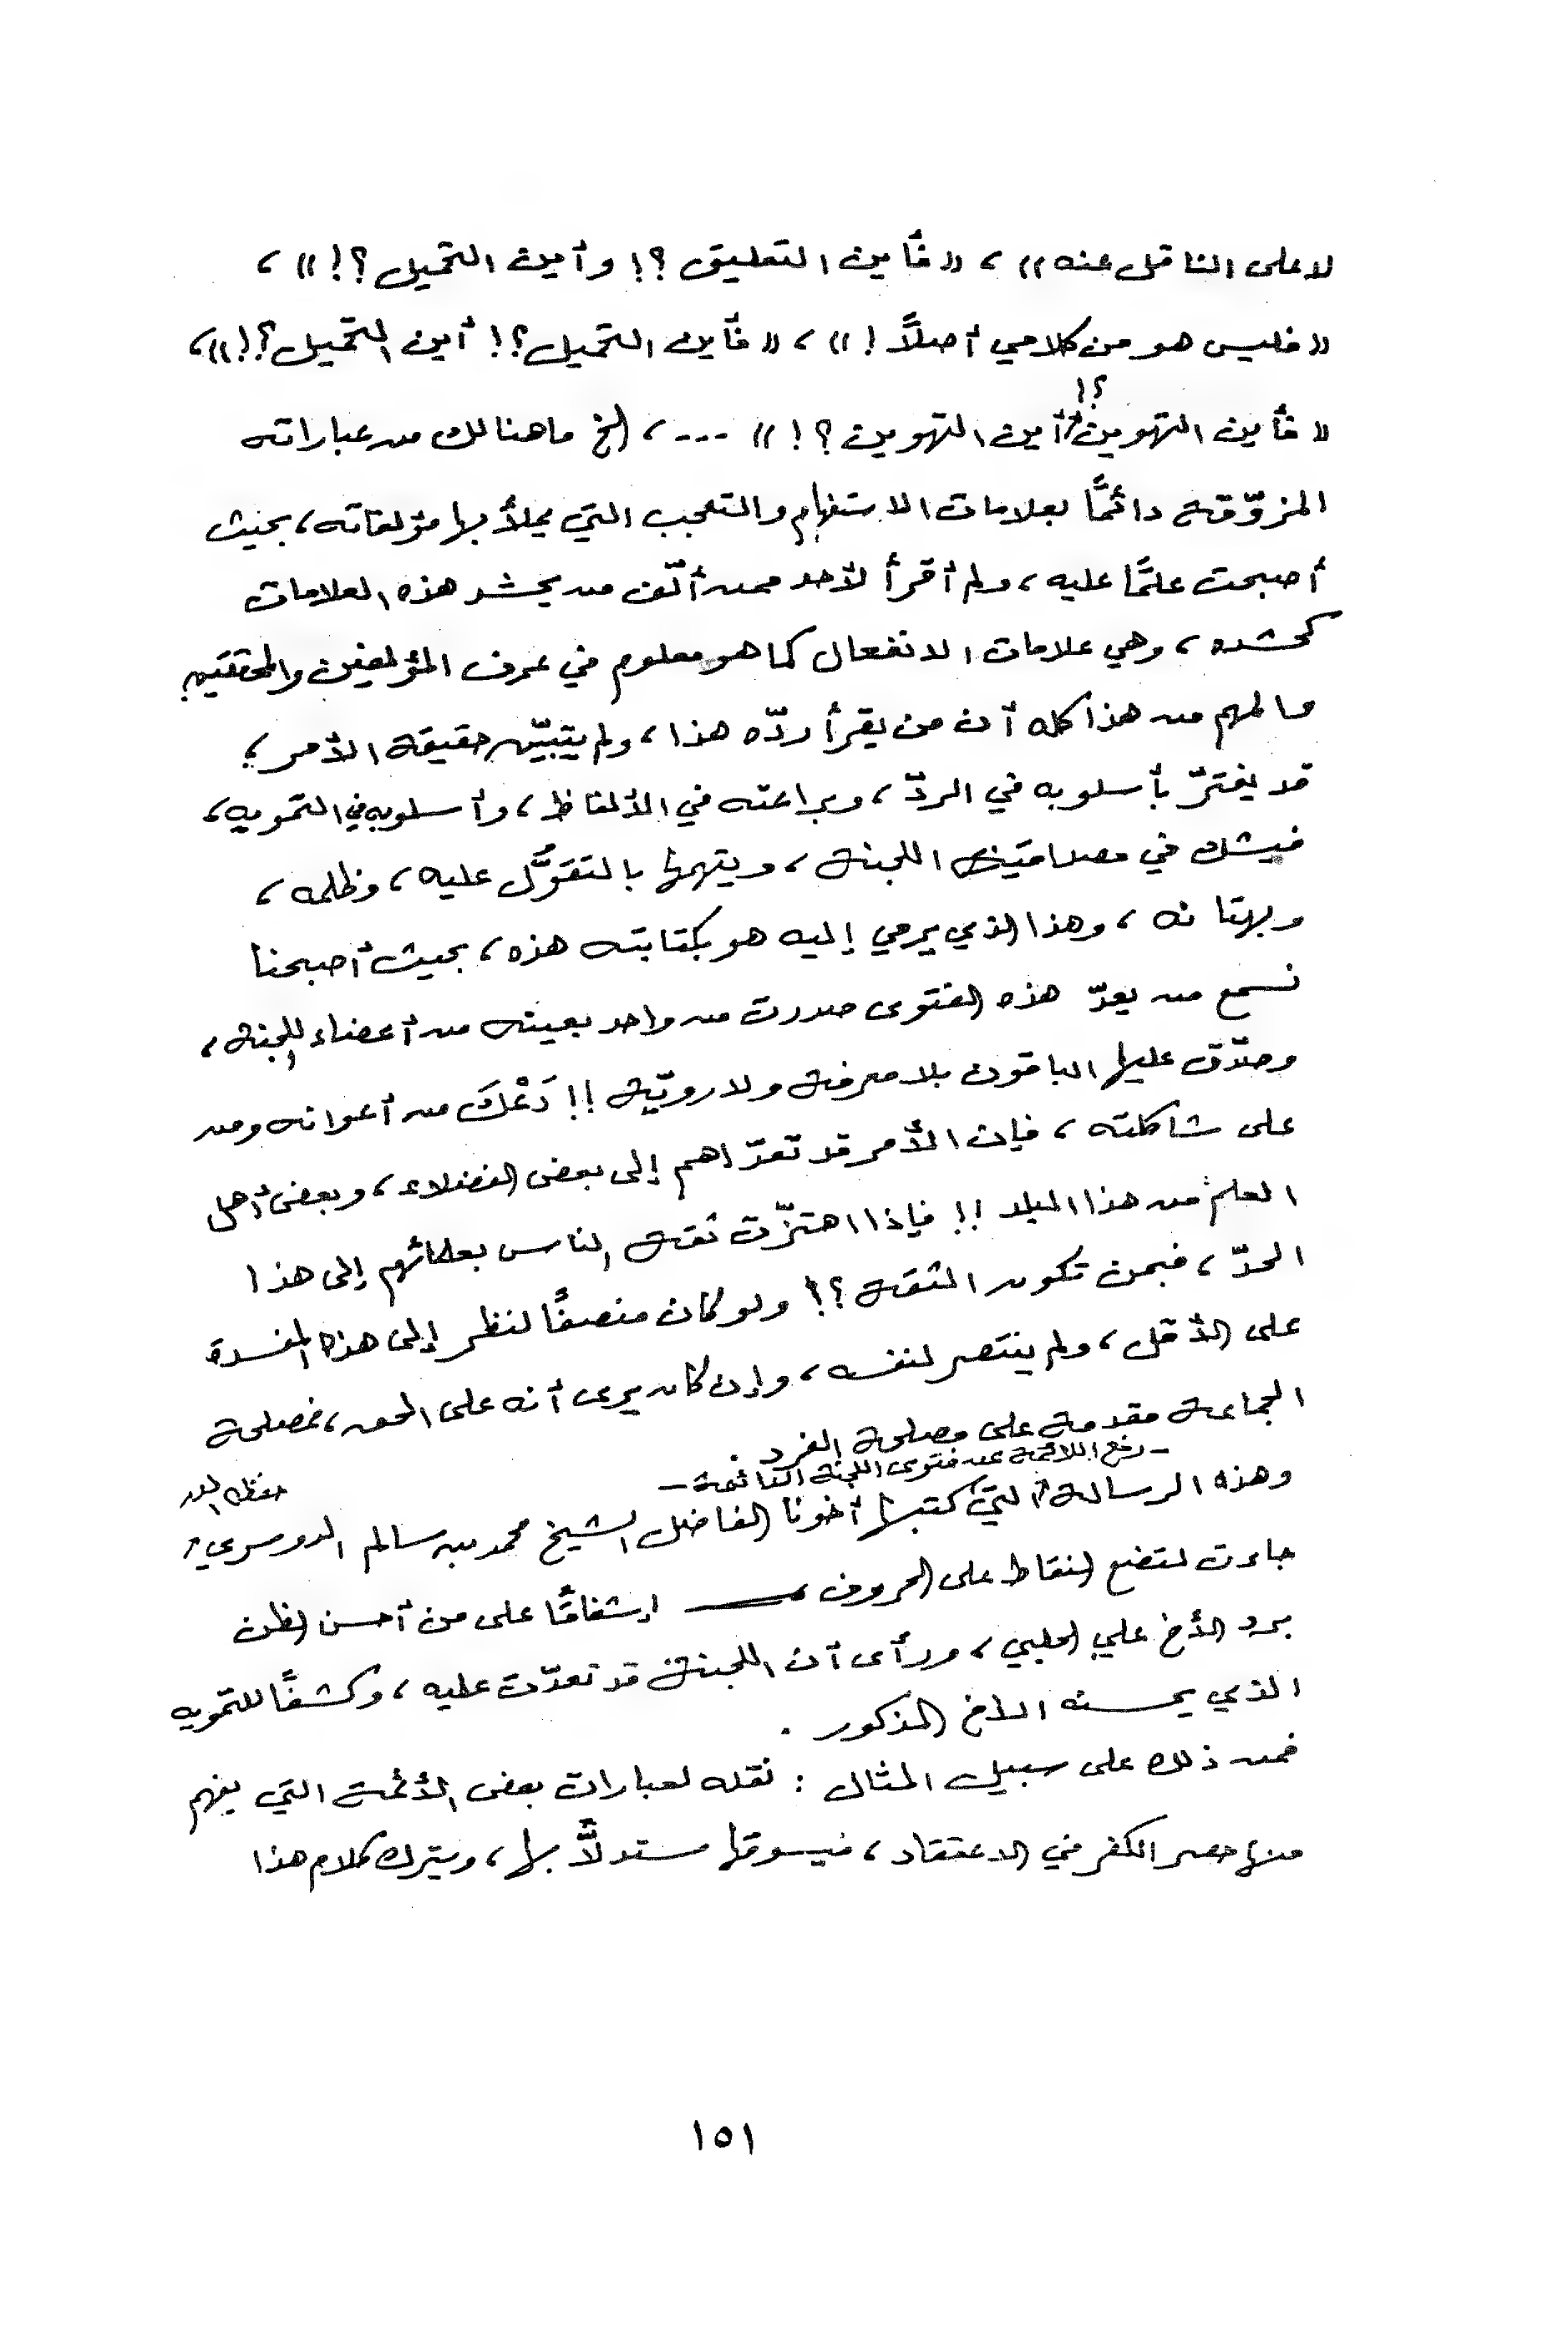 لا على الناقل عنه»، «فأين التعليق؟! وأين التحميل؟!»،
«فليس هو من كلامي أصلاً!»، «فأين التحميل؟! أين التحميل؟!»،
؟!
«فأين التهوين أين التهوين؟!» ---، إلخ ما هنالك من عباراته
المزوّقة دائمًا بعلامات الاستفهام والتعجب التي يملأ بها مؤلفاته، بحيث
أصبحت علمًا عليه، ولم أقرأ لأحد ممن ألّف من يحشد هذه العلامات
كحشده، وهي علامات الانفعال كما هو معلوم في عرف المؤلفين والمحققين.
والمهم من هذا كله أن من يقرأ ردّه هذا، ولم يتبيّن حقيقة الأمر؛
قد يغترّ بأسلوبه في الردّ، وبراعته في الألفاظ، وأسلوبه في التمويه،
فيشك في مصداقية اللجنة، ويتهمها بالتقوُّل عليه، وظلمه،
وبهتانه، وهذا الذي يرمي إليه هو بكتابته هذه، بحيث أصبحنا
نسمع من يعدّ هذه الفتوى صدرت من واحد بعينه من أعضاء اللجنة،
وصدّق عليها الباقون بلا معرفة ولا رويّة!! دَعْكَ من أعوانه ومن
على شاكلته، فإن الأمر قد تعدّاهم إلى بعض الفضلاء، وبعض أهل
العلم من هذا البلد!! فإذا اهتزّت ثقة الناس بعلمائهم إلى هذا
الحدّ، فبمن تكون الثقة؟! ولو كان منصفًا لنظر إلى هذه المفسدة
على الأقل، ولم ينتصر لنفسه، وإن كان يرى أنه على الحق، فمصلحة
الجماعة مقدمة على مصلحة الفرد.
- رفع اللائمة عن فتوى اللجنة الدائمة -
حفظه الله
وهذه الرسالة التي كتبها أخونا الفاضل الشيخ محمد بن سالم الدوسري
جاءت لتضع النقاط على الحروف إشفاقًا على من أحسن الظن
برد الأخ علي الحلبي، ورأى أن اللجنة قد تعدّت عليه، وكشفًا للتمويه
الذي يحسنه الأخ المذكور.
فمن ذلك على سبيل المثال: نقله لعبارات بعض الأئمة التي يفهم
منها حصر الكفر في الاعتقاد، فيسوقها مستدلاًّ بها، ويترك كلام هذا
١٥١